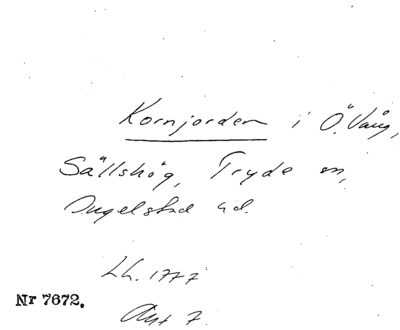 Kornjorden i Ö. Vång,
Sällshög, Tryde sn,
Ingelstad hd.
LL. 1777
Nr 7672.
Akt 7.